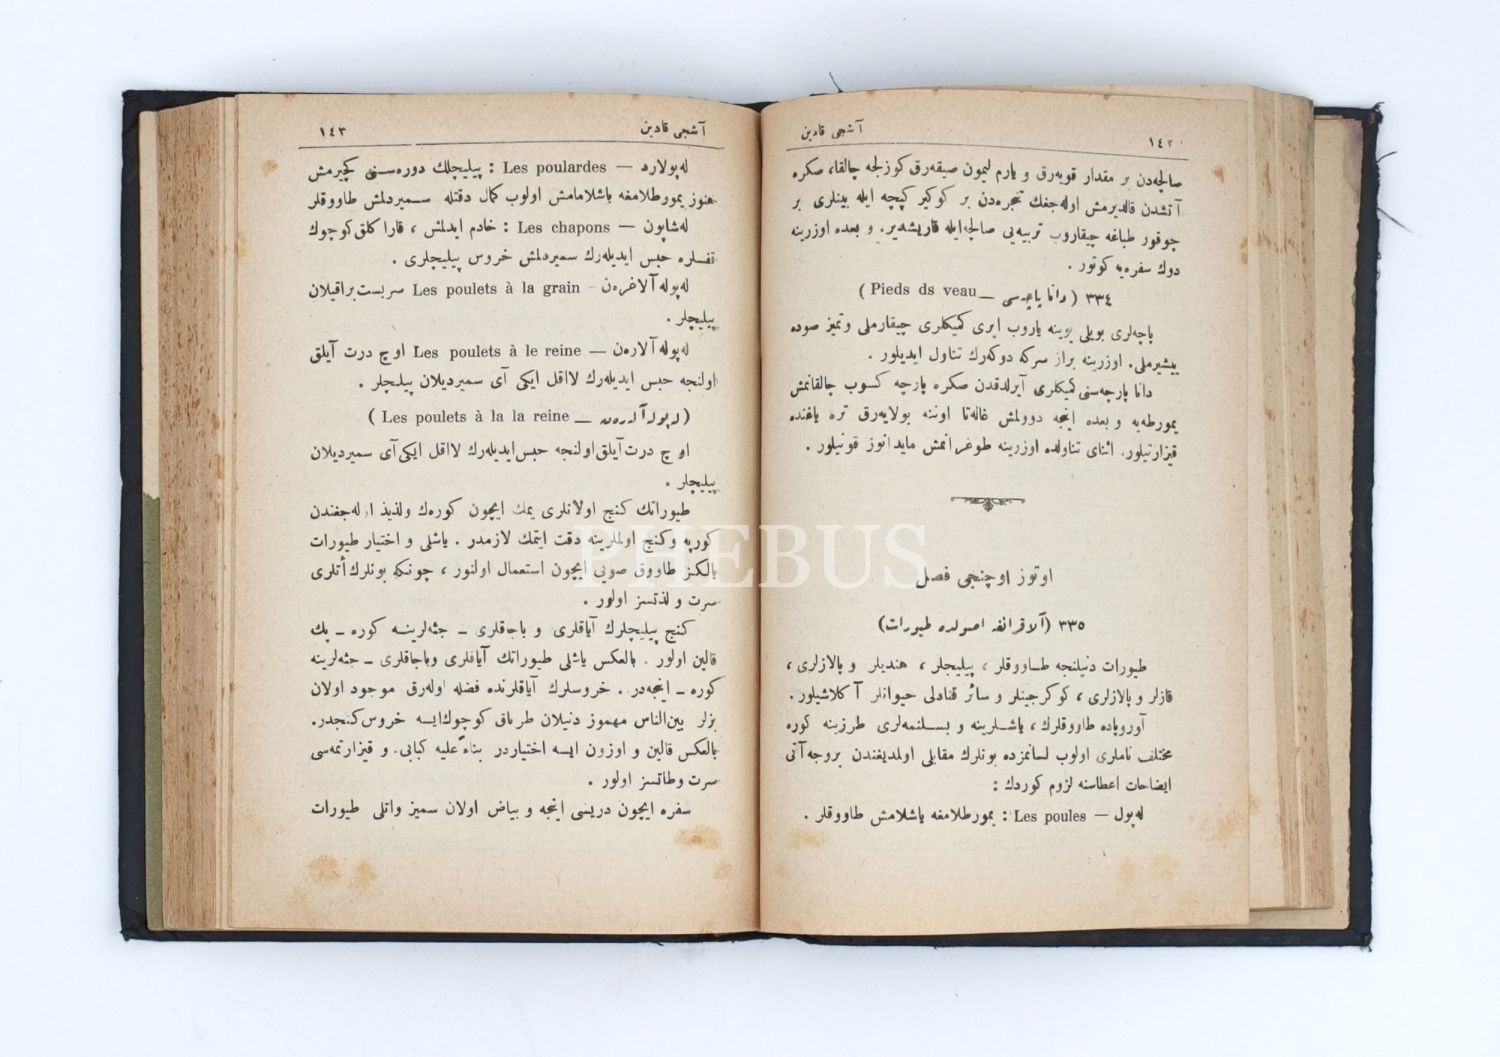 آشجی قادین
صالچه‌دن بر مقدار قویه‌رق و یارم لیمون صیقه‌رق كوزلجه چالقا، صكره
آتشدن قالدیرمش اوله‌جغك تنجره‌دن بر كوكیر كپچه ایله بینلری بر
چوقور طباغه چیقاروب تربیه‌یی صالچه ایله قاریشدیر. و بعده اوزرینه
دوك سفره‌یه كوتور .
٣٣٤ ( دانا پاچه‌سی — Pieds ds veau )
پاچه‌لری بویلی بوینه یاروب ایری كمیكلری چیقارملی وتمیز صوده
پیشیرملی. اوزرینه براز سركه دوكه‌رك تناول ایدیلور .
دانا پارچه‌سنی كمیكلری آیرلدقدن صكره پارچه كسوب چالقانمش
یمورطه‌یه و بعده اینجه دوولمش غاله‌تا اوننه بولایه‌رق تره یاغنده
قیزارتیلور. اثنای تناولده اوزرینه طوغرانمش مایدانوز قونیلور .
اوتوز اوچنجی فصل
٣٣٥ (آلافرانغه اصولده طیورات)
طیورات دنیلنجه طاووقلر ، پیلیجلر ، هندیلر و پالازلری ،
قازلر و پالازلری ، كوكرجینلر و سائر قنادلی حیوانلر آكلاشیلور .
آوروپاده طاووقلرك ، یاشلرینه و بسلنمه‌لری طرزینه كوره
مختلف ناملری اولوب لسانمزده بونلرك مقابلی اولمدیغندن بروجه آتی
ایضاحات اعطاسنه لزوم كوردك :
له‌پول — Les poules : یمورطلامغه باشلامش طاووقلر .
آشجی قادین
١٤٣
له‌پولارد — Les poulardes : پیلیچلك دوره‌سنی كچیرمش
هنوز یمورطلامغه باشلامامش اولوب كمال دقتله سمیردلمش طاووقلر
له‌شاپون — Les chapons : خادم ایدلمش ، قارا كلق كوچوك
قفسلره حبس ایدیله‌رك سمیردلمش خروس پیلیچلری .
له‌پوله آلاغره‌ن - Les poulets à la grain سربست براقیلان
پیلیچلر .
له‌پوله آلاره‌ن — Les poulets à le reine اوچ درت آیلق
اولنجه حبس ایدیله‌رك لااقل ایكی آی سمیردیلان پیلیچلر .
( له‌پوله آلاره‌ن — Les poulets à la la reine )
اوچ درت آیلق اولنجه حبس ایدیله‌رك لااقل ایكی آی سمیردیلان
پیلیچلر .
طیوراتك كنج اولانلری یمك ایچون كوره‌ك ولذیذ اوله‌جغندن
كورپه وكنج اولملرینه دقت ایتمك لازمدر . یاشلی و اختیار طیورات
یالكز طاووق صویی ایچون استعمال اولنور ، چونكه بونلرك أتلری
سرت و لذتسز اولور .
كنج پیلیچلرك آیاقلری و باجاقلری ـ جثه‌لرینه كوره ـ پك
قالین اولور . بالعكس یاشلی طیوراتك آیاقلری وباجاقلری ـ جثه‌لرینه
كوره ـ اینجه‌در . خروسلرك آیاقلرنده فضله اوله‌رق موجود اولان
بزلر بین‌الناس مهموز دنیلان طرناق كوچوك ایسه خروس كنجدر.
بالعكس قالین و اوزون ایسه اختیاردر بناءً علیه كبابی و قیزارتمه‌سی
سرت وطاتسز اولور .
سفره ایچون دریسی اینجه و بیاض اولان سمیز واتلی طیورات
PHEBUS